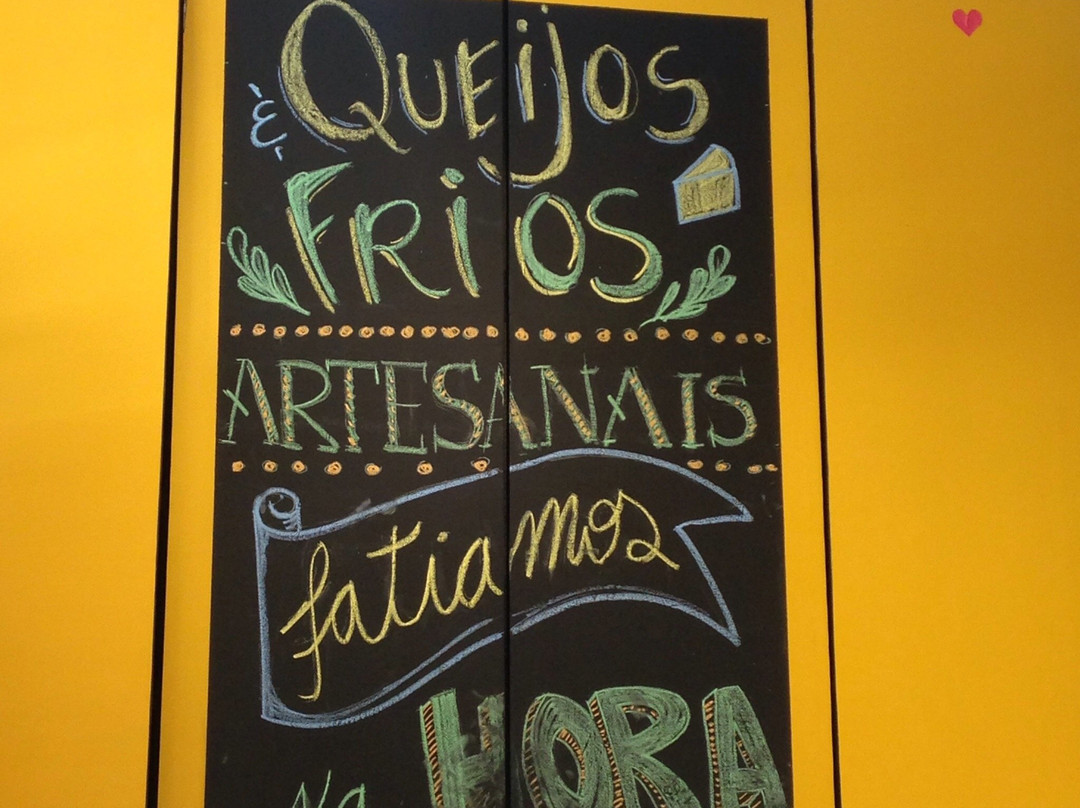 QUEijOS
& FRiOS
ARTESANAIS
fatiamos
Na HORA